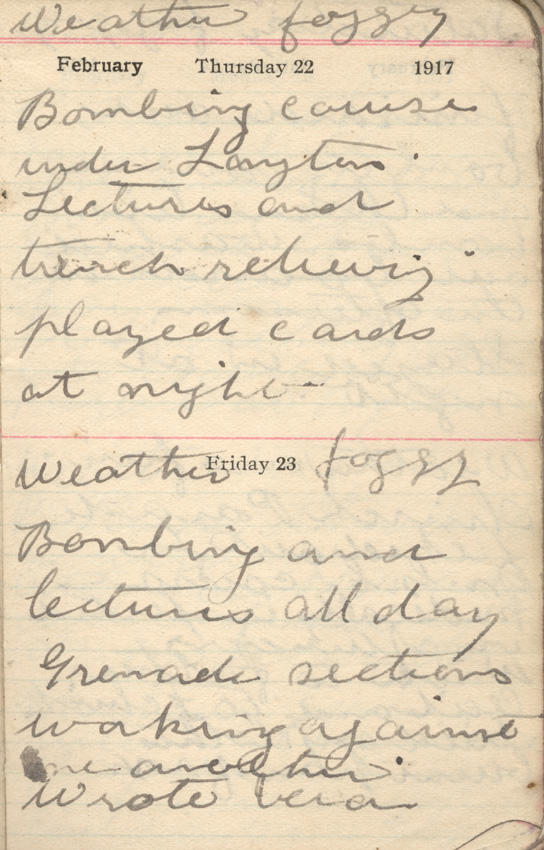 Weather foggy
February Thursday 22 1917
Bombing course
under Layton.
Lectures and
trench relieving
played cards
at night -
Friday 23
Weather foggy
Bombing and
lectures all day
Grenade sections
working against
one another.
Wrote Vera